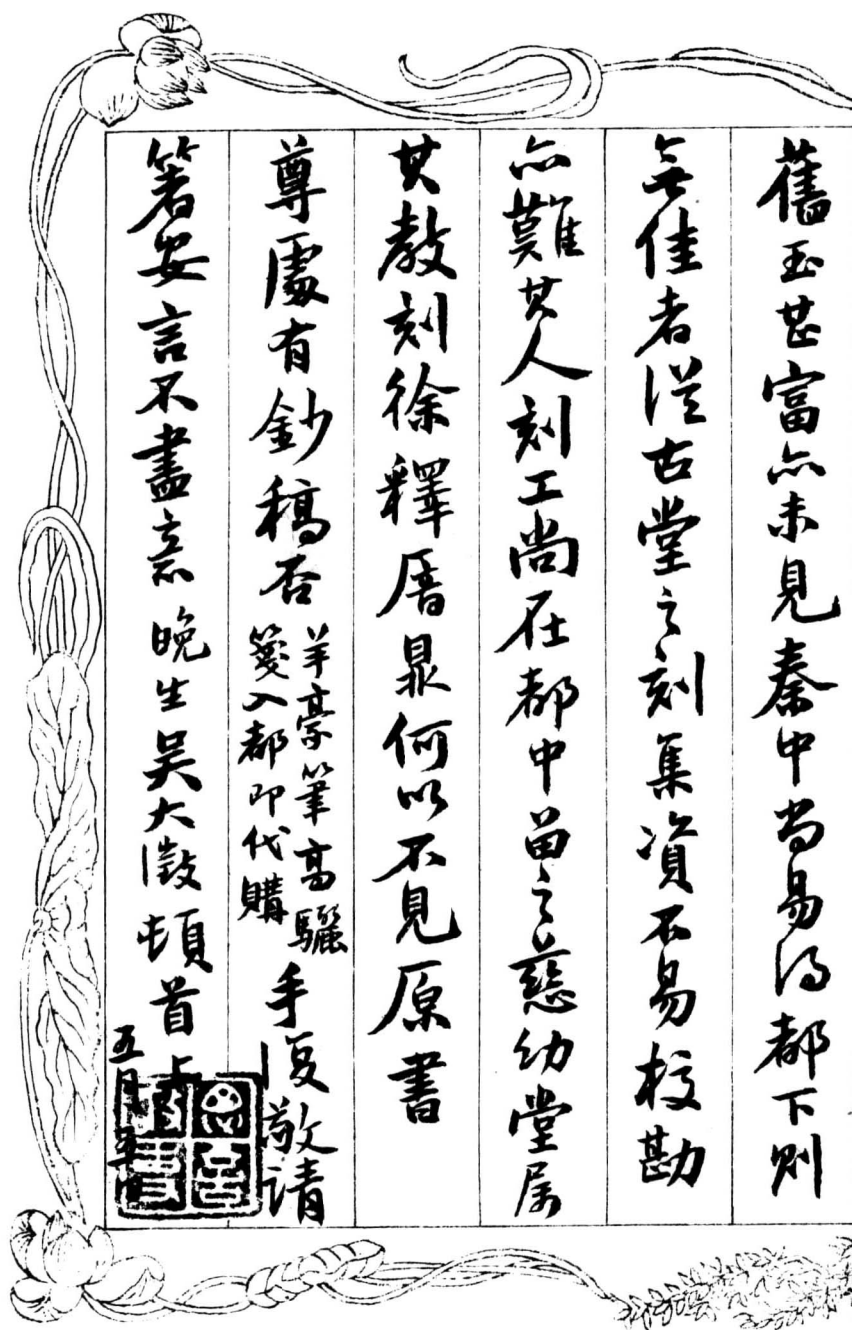 舊玉甚富亦未見秦中尚易得都下則
無佳者從古堂之刻集資不易校勘
亦難其人刻工尚在都中留之慈幼堂屬
其教刻徐釋厝鼎何以不見原書
尊處有鈔稿否羊豪筆高驪
箋入都即代購手復敬請
箸安言不盡意晚生吳大澂頓首上
五月